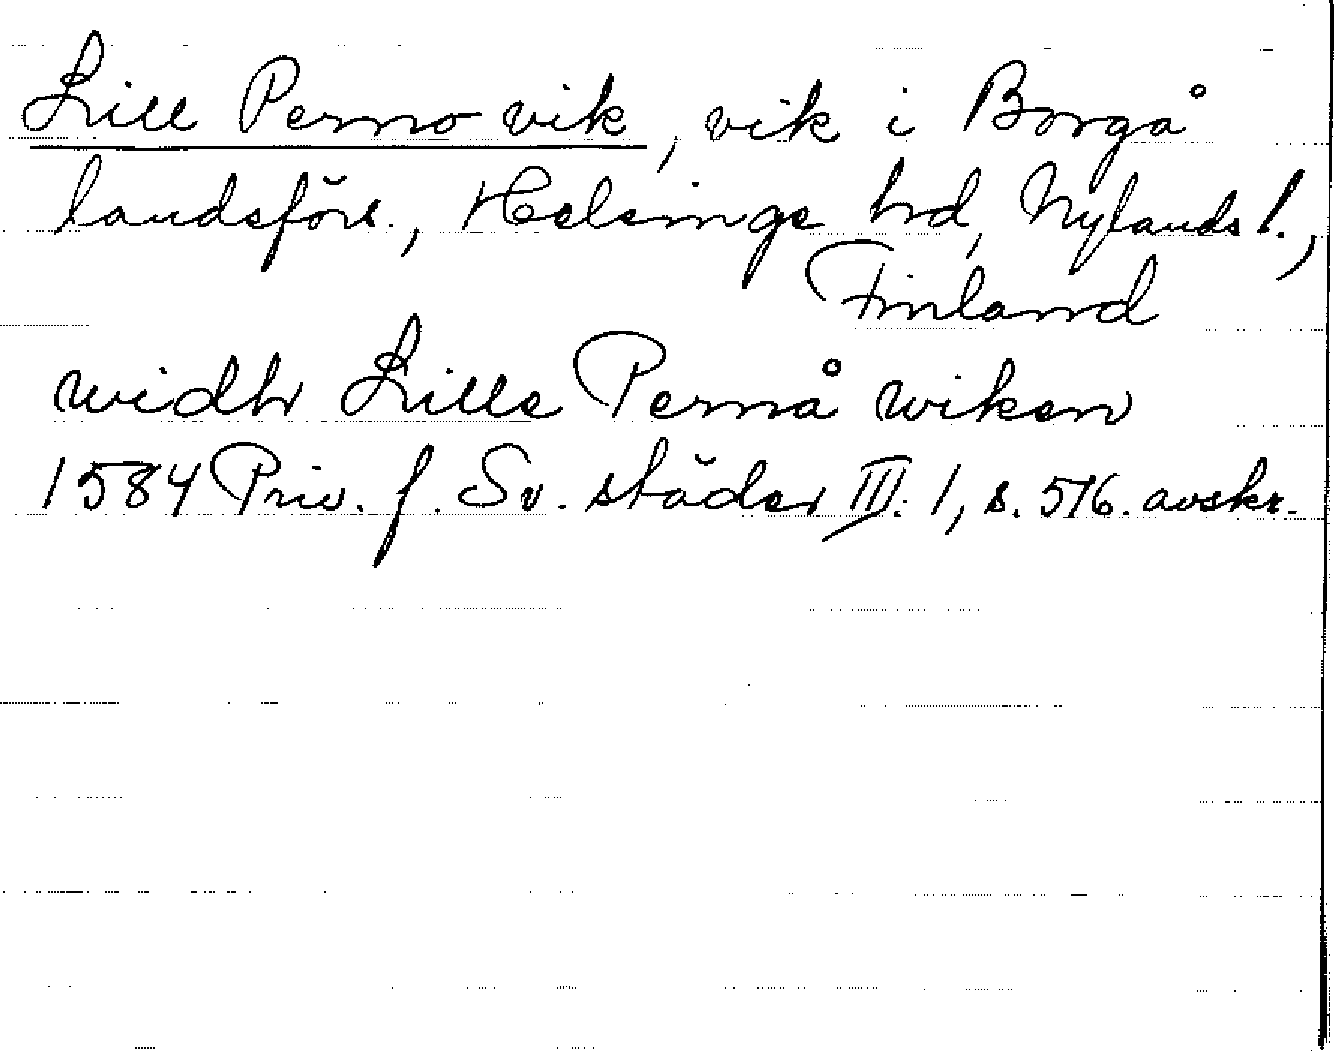 Lill Perno vik, vik i Borgå
landsförs., Helsinge hd, Nylands l.,
Finland
widhr Lille Pernå wiken
1584 Priv. f. Sv. städer III: 1, s. 516. avskr.